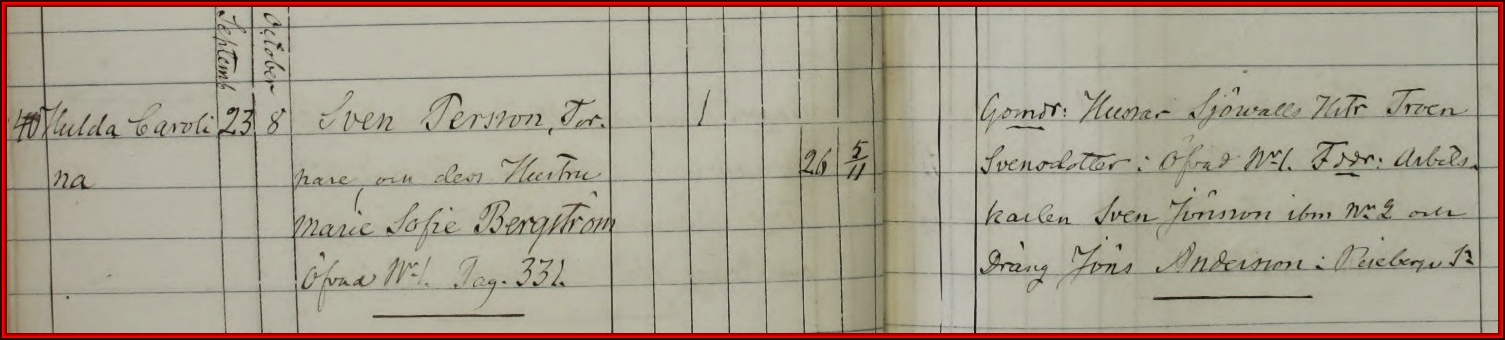 Septemb
October
40 Hulda Caroli 23 8 Sven Persson, Tor- 1
na
pare, och dess Hustru 26 5/11
Marie Sofie Bergström
Öfvad No 1. Pag. 331.
Gomdr: Husar Sjöwalls Hstr Troen
Svensdotter i Öfvad No 1. Fddr: Arbets-
karlen Sven Jönsson ibm No 2 och
Dräng Jöns Andersson i